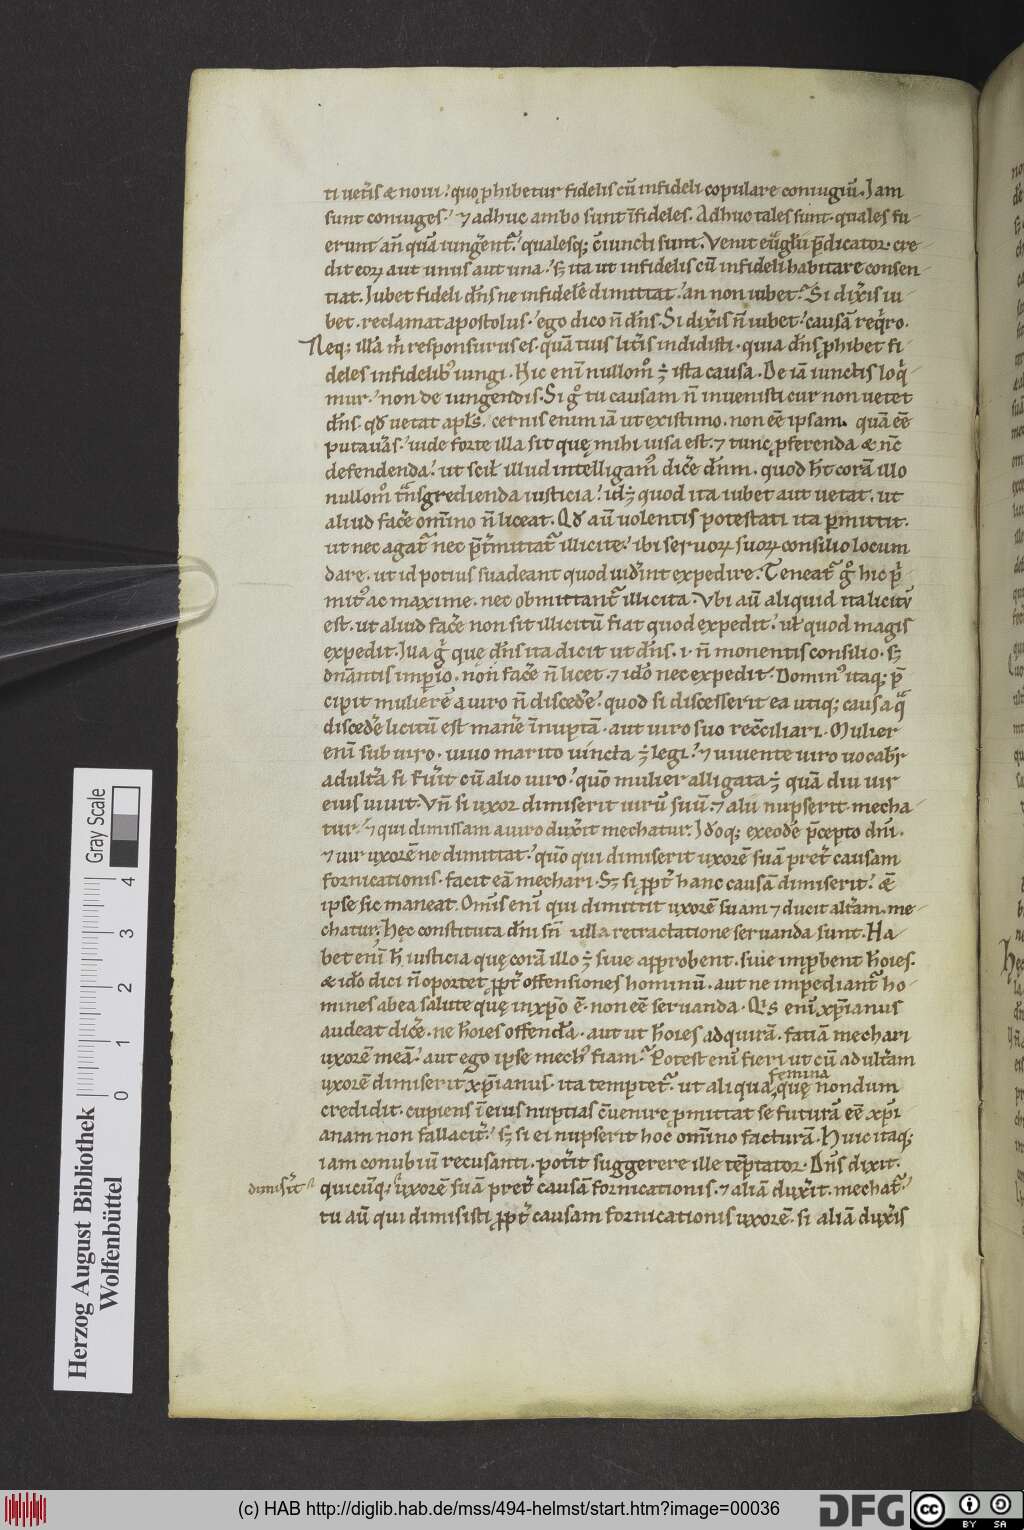 ti uet̃is & noui. quo ꝓhibetur fidelis cũ infideli copulare coniugiũ. Jam
sunt coniuges. ⁊ adhuc ambo sunt ĩfideles. Adhuc tales sunt. quales fu-
erunt añ quã iung̃ent᷑. qualesq; c̃iuncti sunt. Venit eũgłii p̃dicator. cre-
dit eoꝝ aut unus aut una. sꝫ ita ut infidelis cũ infideli habitare consen-
tiat. Jubet fideli dñs ne infidelẽ dimittat. an non iubet. Si dix̃is iu-
bet. reclamat apostolus. ego dico ñ dñs. Si dix̃is ñ iubet. causã req̃ro.
Neq; illã m̃ responsurus es. quã tuis lit̃is indidisti. quia dñs ꝓhibet fi-
deles infidelib; iungi. Hic enĩ nullom̊ ÷ ista causa. De iã iunctis loq̃-
mur. non de iungendis. Si g̊ tu causam ñ inuenisti cur non uetet
dñs. qđ uetat apłs. cernis enim iã ut existimo. non eẽ ipsam. quã eẽ
putau̾as. uide forte illa sit quę mihi uisa est. ⁊ tunc ꝓferenda & nc̃
defendenda. ut scił illud intelligam᷒ dic̃e dñm. quod h̃t corã illo
nullom̊ tñsgredienda iusticia. id÷ quod ita iubet aut uetat. ut
aliud fac̃e om̃ino ñ liceat. Qđ aũ uolentis potestati ita p̃mittit.
ut nec agat᷑ nec p̃t̃mittat᷑ illicite. ibi seruoꝝ suoꝝ consilio locum
dare. ut id potius suadeant quod uid̃int expedire. Teneat᷑ g̊ hic p̃-
mit᷒ ac maxime. nec obmittant᷑ illicita. Vbi aũ aliquid ita licitũ
est. ut aliud fac̃e non sit illicitũ fiat quod expedit. uł quod magis
expedit. Jlla g̃ quę dñs ita dicit ut dñs. i. ñ monentis consilio. sꝫ
dñantis imp̃io. non fac̃e ñ licet. ⁊ idõ nec expedit. Domin᷒ itaq; p̃-
cipit mulierẽ a uiro ñ disced̃e. quod si discesserit ea utiq; causa q̃
disced̃e licitũ est man̾e ĩnuptã. aut uiro suo recc̃iliari. Mulier
enĩ sub uiro. uiuo marito uincta ÷ legi. ⁊ uiuente uiro uocabit᷑
adult̃a si fu̾it cũ alio uiro. quõ mulier alligata ÷ quã diu uir
eius uiuit. Vñ si uxor dimiserit uirũ suũ. ⁊ alii nupserit. mecha-
tur. ⁊ qui dimissam a uiro dux̃it mechatur. Jđoq; ex eođe p̃cepto dñi.
⁊ uir uxorẽ ne dimittat. quõ qui dimiserit uxorẽ suã pret̃ causam
fornicationis. facit eã mechari. Sꝫ si ꝓpt̃ hanc causã dimiserit. &̃
ipse sic maneat. Om̃is enĩ qui dimittit uxorẽ suam ⁊ ducit alt̃am. me-
chatur. Hęc constituta dñi sñ ulla retractatione seruanda sunt. Ha-
bet enĩ h̃ iusticia quę corã illo ÷ siue approbent. suie imꝓbent h̃oies.
& idõ dici ñ oportet ꝓpt̃ offensiones hominũ. aut ne impediant᷑ ho-
mines ab ea salute quę in xp̃o ẽ. non eẽ seruanda. Q̾s enĩ xp̃ianus
audeat dic̃e. ne h̃oies offend̃a. aut ut h̃oies adquirã. fatiã mechari
uxorẽ meã. aut ego ipse mech᷒ fiam. Potest enĩ fieri ut cũ adult̃am
uxorẽ dimiserit xp̃ianus. ita temptet᷑. ut aliqua femina quę nondum
credidit. cupiens ĩ eius nuptias c̃uenire ꝓmittat se futurã eẽ xp̃i-
anam non fallacit̃. sꝫ si ei nupserit hoc om̃ino facturã. Huic itaq;
iam conubiũ recusanti. pot̃it suggerere ille tẽptator. Dñs dixit.
dimis̃it
quicũq; uxorẽ suã pret̃ causã fornicationis. ⁊ aliã dux̃it. mechat᷑.
tu aũ qui dimisisti ꝓpt̃ causam fornicationis uxorẽ. si aliã dux̃is
Herzog August Bibliothek
Wolfenbüttel
0 1 2 3 4
Gray Scale
(c) HAB http://diglib.hab.de/mss/494-helmst/start.htm?image=00036
DFG
cc BY SA